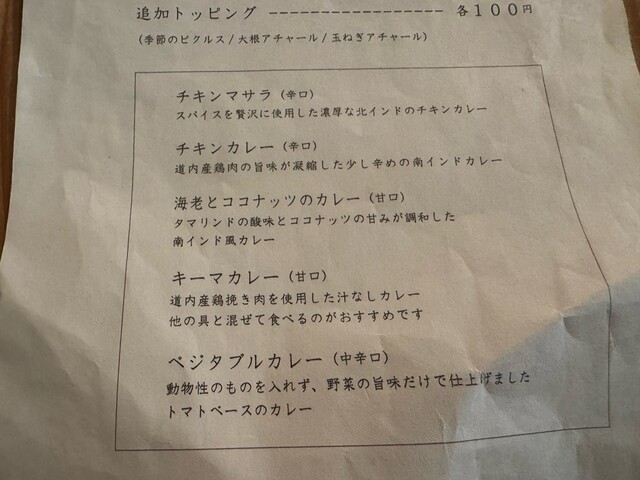 追加トッピング ----------------- 各100円
(季節のピクルス/大根アチャール/玉ねぎアチャール)
チキンマサラ(辛口)
スパイスを贅沢に使用した濃厚な北インドのチキンカレー
チキンカレー(辛口)
道内産鶏肉の旨味が凝縮した少し辛めの南インドカレー
海老とココナッツのカレー(甘口)
タマリンドの酸味とココナッツの甘みが調和した
南インド風カレー
キーマカレー(甘口)
道内産鶏挽き肉を使用した汁なしカレー
他の具と混ぜて食べるのがおすすめです
ベジタブルカレー(中辛口)
動物性のものを入れず、野菜の旨味だけで仕上げました
トマトベースのカレー